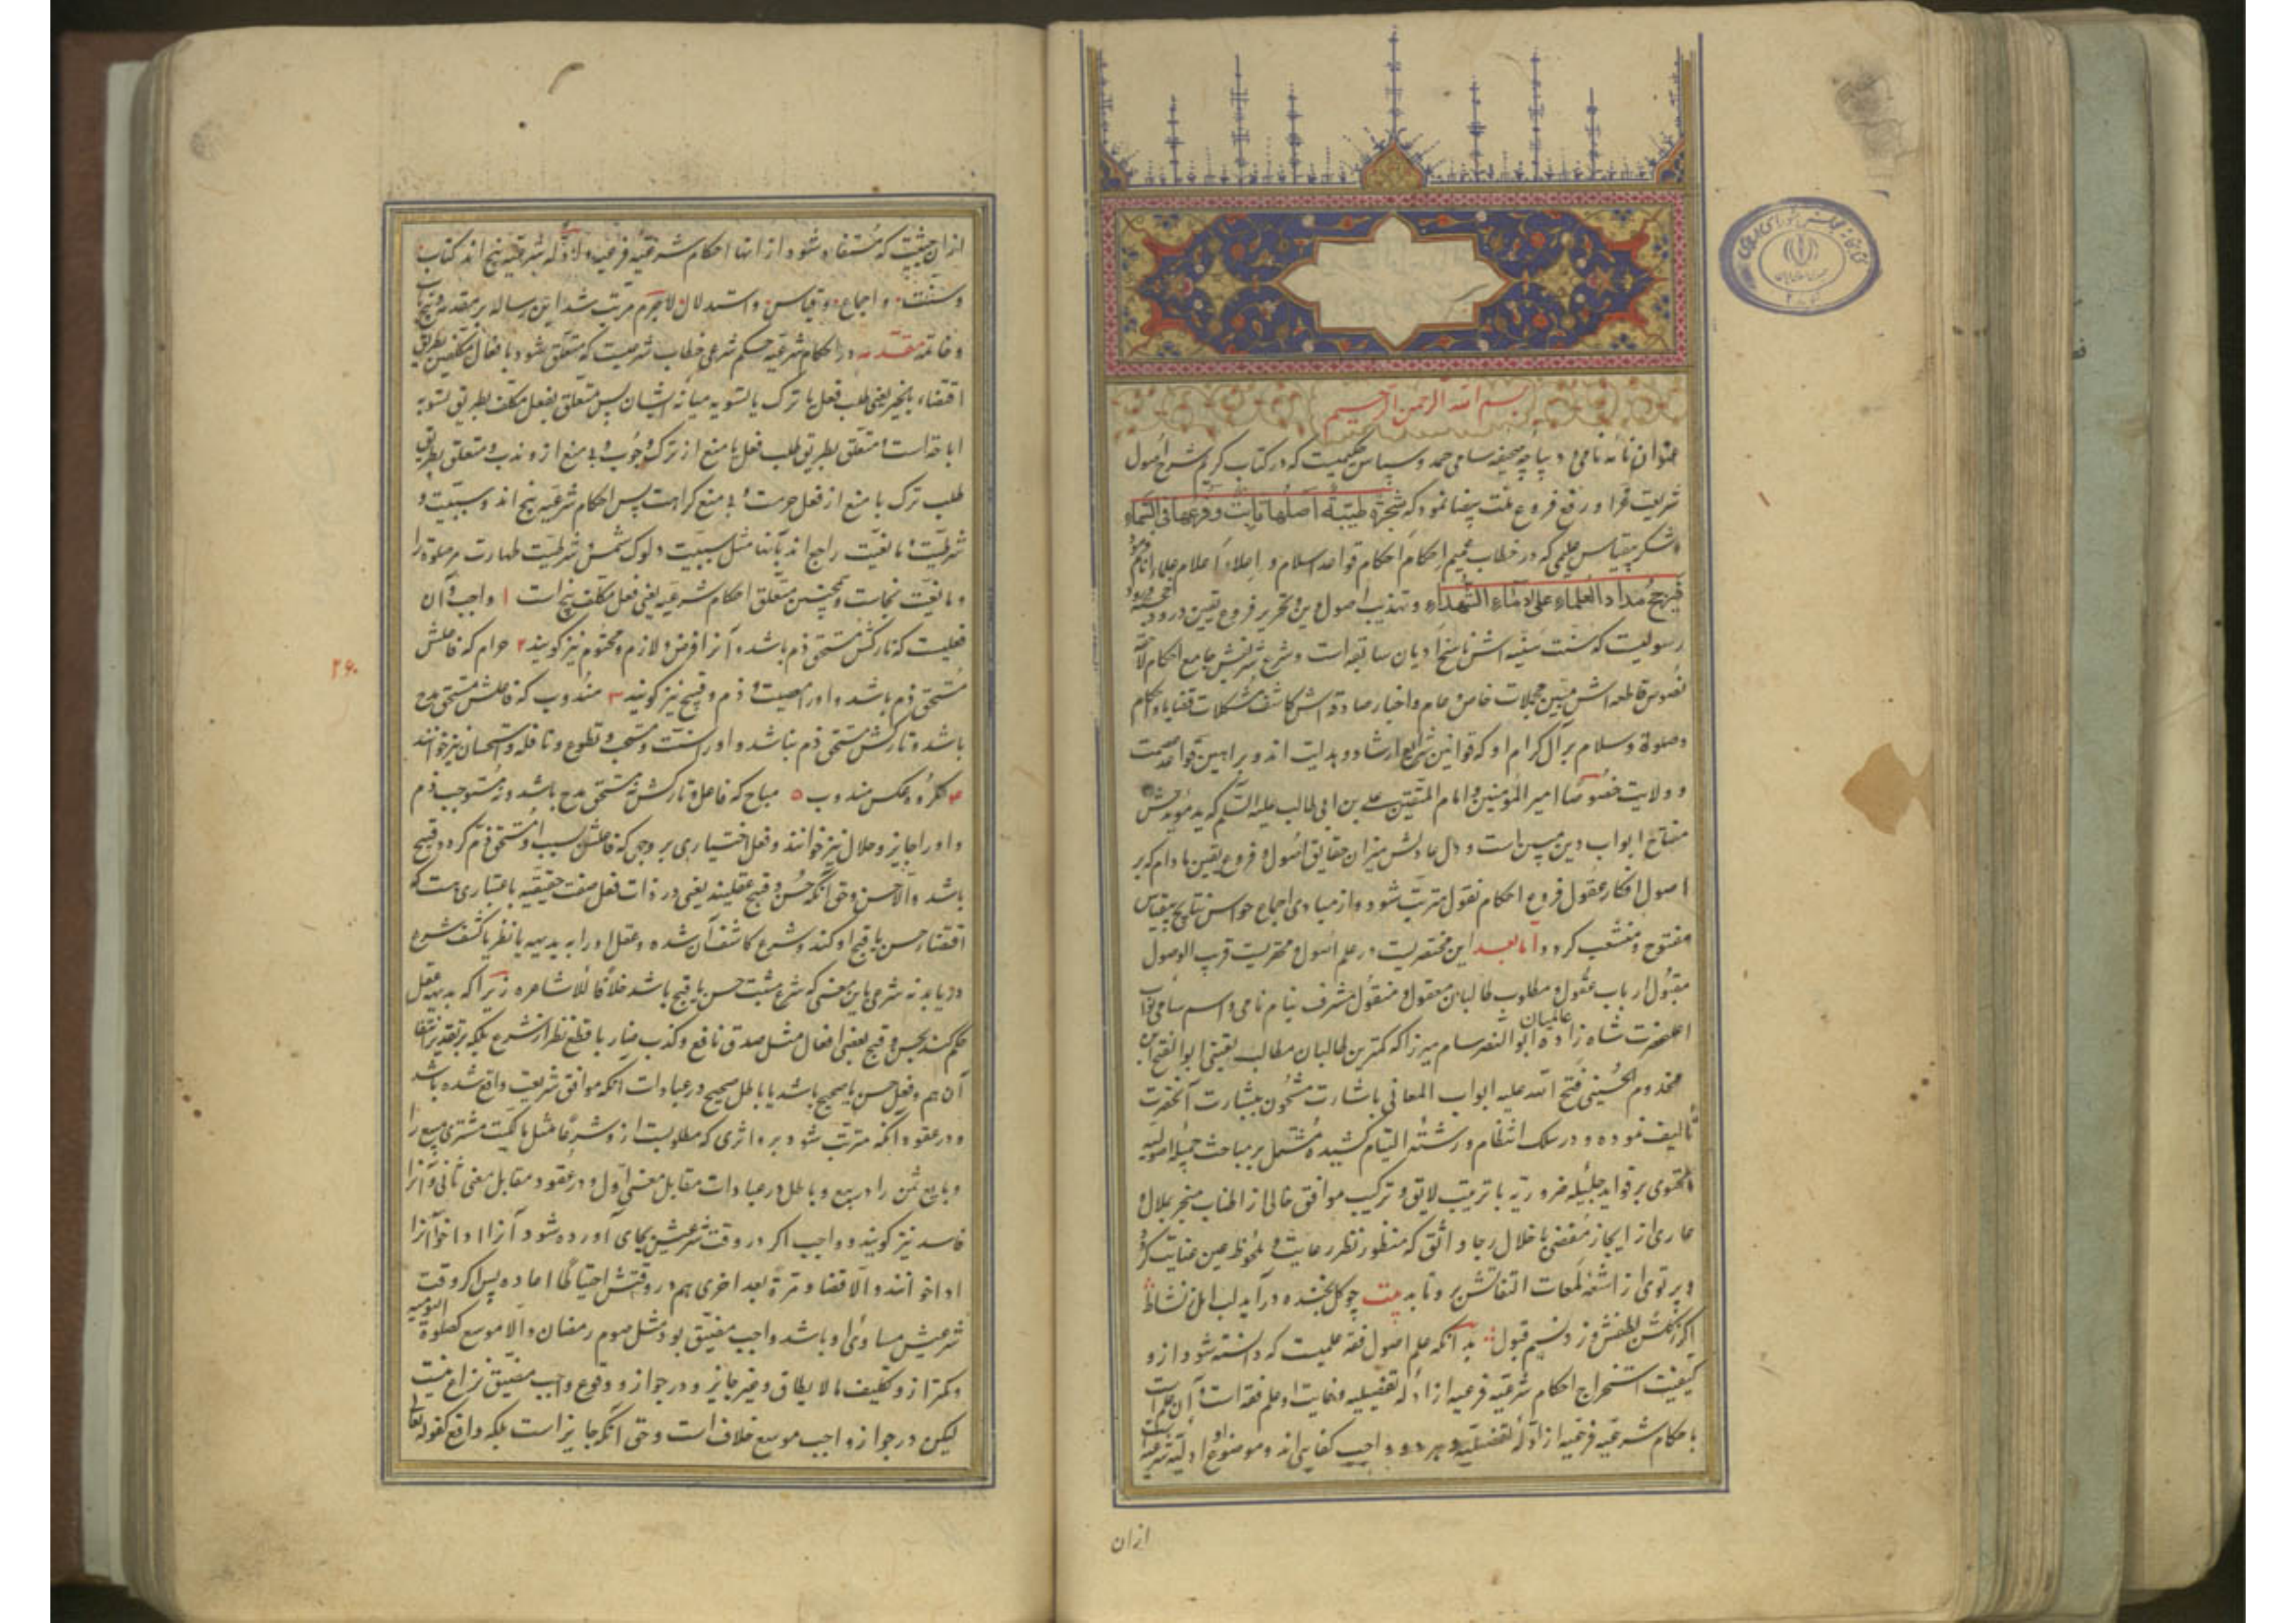 بسم الله الرحمن الرحیم
عنوان نامهٔ نامی و دیباچهٔ صحیفه سامی حمد و سپاس حکیمیست که در کتاب کریم شرح اصول
شریعت غرا و رفع فروع ملت بیضا نمود که شجرة طیبة اصلها ثابت وفرعها فی السماء
و شکر بیقیاس علیمی که در خطاب عمیم احکام احکام قواعد اسلام و اعلاء اعلام علماء انام فرمود
فیرجح مداد العلماء علی دماء الشهداء و تهذیب اصول دین و تحریر فروع یقین درود
رسولیست که سنت سنیه اش ناسخ ادیان سابقه است و شرع شریفش جامع احکام لاحقه
نصوص قاطعه اش مبین مجملات خاص و عام و اخبار صادقه اش کاشف مشکلات قضایا و احکام
و صلوة و سلام بر آل کرام او که قوانین شرایع ارشاد و هدایت اند و براهین قواعد عصمت
و ولایت خصوصا امیر المؤمنین و امام المتقین علی بن ابی طالب علیه السلم که ید مؤیدش
مفتاح ابواب دین مبین است و دل عادلش میزان حقایق اصول و فروع یقین مادام که بر
اصول افکار عقول فروع احکام نقول مترتب شود و از مبادی اجماع حواس نتایج بیقیاس
مفتوح و منشعب کردد اما بعد این مختصریست در علم اصول و محرریست قریب الوصول
مقبول ارباب عقول و مطلوب طالبان معقول و منقول مشرف بنام نامی و اسم سامی نواب
اعلحضرت شاه زاده عالمیان ابو النصر سام میرزا که کمترین طالبان مطالب یقینی ابو الفتح بن
مخدوم الحسینی فتح الله علیه ابواب المعانی باشارت مشحون ببشارت آنحضرت
تألیف نموده و در سلک انتظام و رشتهٔ التیام کشیده مشتمل بر مباحث جمیله اصولیه
محتوی بر فواید جلیله ضروریه با ترتیب لایق و ترکیب موافق خالی از اطناب منجر بملال و
عاری از ایجاز مفضی باخلال رجا واثق که منظور نظر رعایت و ملحوظ عین عنایت کردد
و پرتوی از اشعهٔ لمعات التفاتش برو تابد بیت چو کل بخنده در آید لب امل ز نشاط
اکر ز کلشن لطفش وزد نسیم قبول بدانکه علم اصول فقه علمیست که دانسته شود ازو
کیفیت استخراج احکام شرعیه فرعیه از ادله تفصیلیه و غایت او علم فقه است و آن علم است
باحکام شرعیه فرعیه از ادله تفصیلیه و هر دو واجب کفایی اند و موضوع او ادله شرعیه است
ازان
ازان حیثیت که مستفاد شود از انها احکام شرعیه فرعیه و ادله شرعیه پنج اند کتاب
و سنت و اجماع و قیاس و استدلال لاجرم مرتب شد این رساله بر مقدمه و پنج باب
و خاتمه مقدمه در احکام شرعیه حکم شرعی خطاب شرعیست که متعلق شود بافعال مکلفین بطریق
اقتضاء یا تخییر یعنی طلب فعل یا ترک یا تسویه میانه ایشان پس متعلق بفعل مکلف بطریق تسویه
اباحة است و متعلق بطریق طلب فعل با منع از ترک وجوب و بی منع ازو ندب و متعلق بطریق
طلب ترک با منع از فعل حرمت و بی منع کراهت پس احکام شرعیه پنج اند و سببیت و
شرطیت و مانعیت راجع اند بآنها مثل سببیت دلوک شمس و شرطیت طهارت مر صلوة را
و مانعیت نجاست و همچنین متعلق احکام شرعیه یعنی فعل مکلف پنج است ۱ واجب و آن
فعلیست که تارکش مستحق ذم باشد و آنرا فرض و لازم و محتوم نیز کویند ۲ حرام که فاعلش
مستحق ذم باشد و اورا معصیت و ذم و قبیح نیز کویند ۳ مندوب که فاعلش مستحق مدح
باشد و تارکش مستحق ذم نباشد و اورا سنت و مستحب و تطوع و نافله و استحسان نیز خوانند
۴ مکروه عکس مندوب ۵ مباح که فاعل و تارکش نه مستحق مدح باشد و نه مستوجب ذم
و اورا جایز و حلال نیز خوانند و فعل اختیاری بر وجهی که فاعلش بسبب او مستحق ذم کردد قبیح
باشد والا حسن و حق آنکه حسن و قبح عقلیند یعنی در ذات فعل صفت حقیقیه یا اعتباری هست که
اقتضاء حسن یا قبح او کند و شرع کاشف آن شده و عقل اورا به بدیهه یا نظر یا کشف شرع
دریابد نه شرعی باین معنی که شرع مثبت حسن یا قبح باشد خلافا للاشاعره زیرا که بدیهه عقل
حکم کند بحسن و قبح بعضی افعال مثل صدق نافع و کذب ضار با قطع نظر از شرع بلکه بر تقدیر انتفاء
آن هم و فعل حسن یا صحیح باشد یا باطل صحیح در عبادات آنکه موافق شریعت واقع شده باشد
و در عقود آنکه مترتب شود برو اثری که مطلوبست ازو شرعا مثل مالکیت مشتری مبیع را
و بایع ثمن را در بیع و باطل در عبادات مقابل معنی اول و در عقود مقابل معنی ثانی و آنرا
فاسد نیز کویند و واجب اکر در وقت شرعیش بجای آورده شود آنرا ادا خوانند
ادا خوانند والا قضا و مرة بعد اخری هم در وقتش احتیاطا اعاده پس اکر وقت
شرعیش مساوی او باشد واجب مضیق بود مثل صوم رمضان والا موسع کصلوة الیومیه
و کمتر ازو تکلیف ما لا یطاق و غیر جایز و در جواز و وقوع واجب مضیق نزاع نیست
لیکن در جواز واجب موسع خلاف است و حق آنکه جایز است بلکه واقع کقوله تعالی
۲۶۰
۱